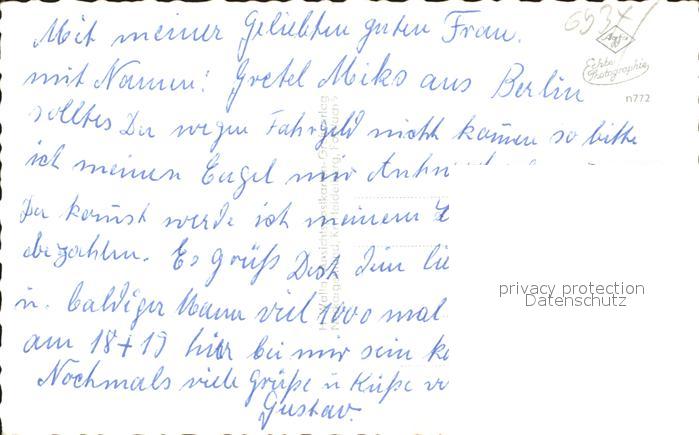 Mit meiner Geliebten guten Frau.
mit Namen: Gretel Miks aus Berlin
solltes Du wegen Fahrgeld nicht kommen so bitte
ich meinen Engel mir Antw
Du kommst werde ich meinem
bezahlen. Es grüßt Dich Dein lie
u. baldiger Mann viel 1000 mal
am 18+19 hier bei mir sein kö
Nochmals viele Grüße u Küße vo
Gustav.
Agfa
Echte
Photographie
n772
privacy protection
Datenschutz